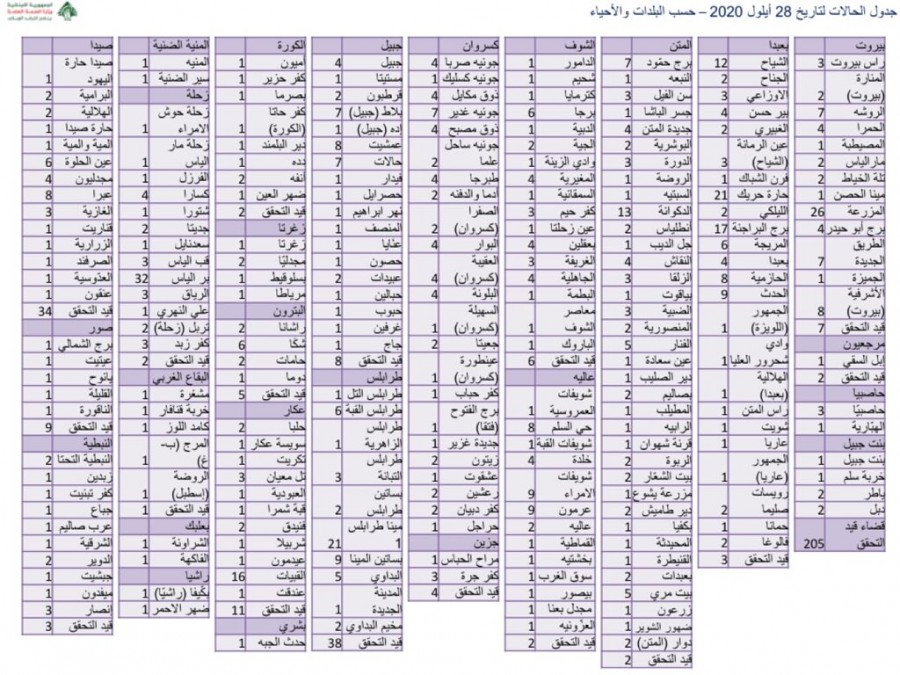 الجمهورية اللبنانية
وزارة الصحة العامة
جدول الحالات لتاريخ 28 أيلول 2020 – حسب البلدات والأحياء
بيروت
راس بيروت 3
المنارة
(بيروت) 2
الروشه 7
الحمرا 4
المصيطبة 1
مار الياس 2
تلة الخياط 2
مينا الحصن 1
المزرعة 26
برج أبو حيدر 4
الطريق
الجديدة 7
الجميزة 1
الأشرفية
(بيروت) 8
قيد التحقق 7
مرجعيون
إبل السقي 1
قيد التحقق 2
حاصبيا
حاصبيّا 3
الهبّارية 1
بنت جبيل
بنت جبيل 1
خربة سلم 1
ياطر 2
دبل 2
قضاء قيد
التحقق 205
بعبدا
الشياح 12
الجناح 2
الاوزاعي 3
بير حسن 4
الغبيري 2
عين الرمانة
(الشياح) 3
فرن الشباك 1
حارة حريك 21
الليلكي 2
برج البراجنة 17
المريجة 6
بعبدا 4
الحازمية 8
الحدث 9
الجمهور
(اللويزة) 1
وادي
شحرور العليا 1
الهلالية
(بعبدا) 1
راس المتن 1
شويت 1
عاريا 1
الجمهور
(عاريا) 1
رويسات
صليما 2
حمانا 1
فالوغا 2
قيد التحقق 3
المتن
برج حمّود 7
النبعه 1
سن الفيل 3
جسر الباشا 1
جديدة المتن 4
البوشرية 2
الدورة 3
الروضة 1
السبتيه 1
الدكوانة 13
انطلياس 2
جل الديب 1
النقاش 4
الزلقا 3
بياقوت 1
الضبية 3
المنصورية 2
الفنار 5
عين سعادة 1
دير الصليب 1
بصاليم 2
المطيلب 1
الرابيه 1
قرنة شهوان 1
الربوة 2
بيت الشعار 2
مزرعة يشوع 1
دير طاميش 2
بكفيا 1
المحيدثة 1
القنيطرة 1
بعبدات 2
بيت مري 5
زرعون 1
ضهور الشوير 1
دوار (المتن) 2
قيد التحقق 2
الشوف
الدامور 1
شحيم 1
كترمايا 1
برجا 6
الدبية 1
الجية 2
وادي الزينة 1
المغيرية 4
السمقانية 1
كفر حيم 3
عين زحلتا 1
بعقلين 4
الغريفة 3
الجاهلية 4
البطمة 1
معاصر
الشوف 1
الباروك 1
قيد التحقق 6
عاليه
شويفات
العمروسية 1
حي السلم 8
شويفات القبة 1
خلدة 4
شويفات
الامراء 9
عرمون 9
عاليه 2
القماطية 1
بخشتيه 1
سوق الغرب 1
بيصور 1
مجدل بعنا 1
العزّونيه 1
قيد التحقق 2
كسروان
جونيه صربا 4
جونيه كسليك 1
ذوق مكايل 4
جونيه غدير 7
ذوق مصبح 4
جونيه ساحل
علما 2
طبرجا 4
أدما والدفنه 2
الصفرا
(كسروان) 2
البوار 4
العقيبة
(كسروان) 4
البلونة 4
السهيلة
(كسروان) 1
جعيتا 2
عينطورة
(كسروان) 1
كفر حباب 1
برج الفتوح
(فتقا) 1
جديدة غزير 1
زيتون 2
عشقوت 1
رعشين 2
كفر دبيان 2
حراجل 1
جزين
مراح الحباس 1
كفر جرة 3
قيد التحقق 4
جبيل
جبيل 4
مستيتا 1
قرطبون 2
بلاط (جبيل) 7
إده (جبيل) 1
عمشيت 8
حالات 7
فيدار 1
حصرايل 1
نهر ابراهيم 1
المنصف 1
عنايا 1
حصون 1
عبيدات 2
حبالين 1
حبوب 1
غرفين 1
جاج 1
قيد التحقق 8
طرابلس
طرابلس التل 1
طرابلس القبة 6
طرابلس
الزاهرية 1
طرابلس
التبانة 3
بساتين
طرابلس 2
مينا طرابلس
1 21
بساتين المينا 9
البداوي 5
المدينة
الجديدة 1
مخيم البداوي 2
قيد التحقق 38
الكورة
أميون 1
كفر حزير 1
بصرما 1
كفر حاتا
(الكورة) 1
دير البلمند 1
دده 1
أنفه 2
ضهر العين 1
قيد التحقق 2
زغرتا
زغرتا 1
مجدليّا 2
بسلوقيط 1
مرياطا 1
البترون
راشانا 2
شكّا 6
حامات 2
دوما 1
قيد التحقق 5
عكار
حلبا 2
سويسة عكار 1
تكريت 1
تل معيان 3
العبودية 1
قبة شمرا 1
فنيدق 2
شربيلا 1
عيدمون 1
القبيات 16
عندقت 1
قيد التحقق 11
بشري
حدث الجبه 1
المنية الضنية
المنيه 1
سير الضنية 1
زحلة
زحلة حوش
الامراء 1
زحلة مار
الياس 1
الفرزل 1
كسارا 4
شتورا 1
جديتا 2
سعدنايل 1
قب الياس 3
بر الياس 32
الرياق 3
علي النهري 1
تربل (زحلة) 2
كفر زبد 3
قيد التحقق 2
البقاع الغربي
مشغرة 1
خربة قنافار 1
كامد اللوز 1
المرج (ب-
غ) 1
الروضة
(إسطبل) 1
قيد التحقق 1
بعلبك
الشراونة 1
الفاكهة 1
راشيا
بكيفا (راشيّا) 1
ضهر الاحمر 1
صيدا
صيدا حارة
اليهود 1
البرامية 2
الهلالية 2
حارة صيدا 1
المية والمية 1
عين الحلوة 6
مجدليون 4
عبرا 8
الغازية 3
قناريت 1
الزرارية 1
الصرفند 1
العدّوسية 1
عنقون 1
قيد التحقق 34
صور
برج الشمالي 1
عيتيت 1
يانوح 1
القليلة 1
الناقورة 1
قيد التحقق 9
النبطية
النبطية التحتا 2
زبدين 1
كفر تبنيت 1
جباع 1
عرب صاليم 1
الشرقية 1
الدوير 2
جبشيت 1
ميفدون 1
إنصار 3
قيد التحقق 3